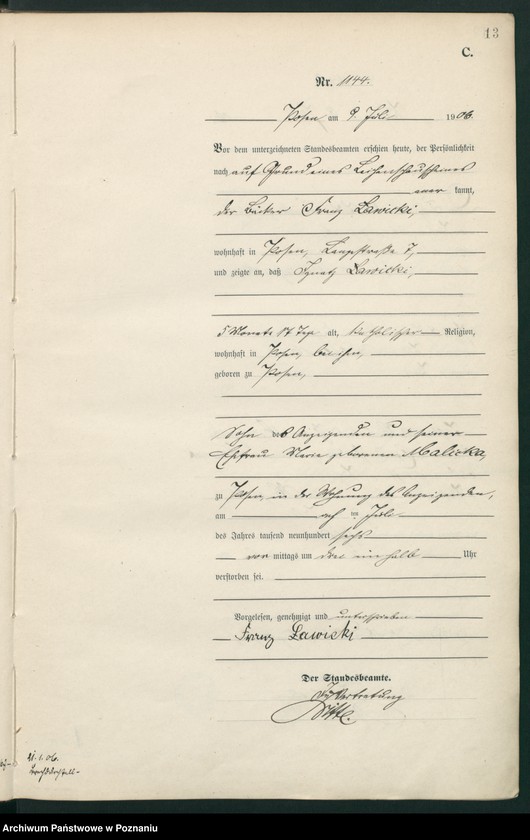 13
C.
Nr. 1144.
Posen am 9. Juli 1906.
Vor dem unterzeichneten Standesbeamten erschien heute, der Persönlichkeit
nach auf Grund eines Leichenschauscheines
aner kannt,
der Bäcker Franz Lawicki,
wohnhaft in Posen, 7,
und zeigte an, daß Ignatz Lawicki,
5 Monate alt, katholischer Religion,
wohnhaft in Posen, bei ihm,
geboren zu Posen,
Sohn des Anzeigenden und seiner
Ehefrau Marie geborenen Malicka,
zu Posen, in der Wohnung des Anzeigenden,
am ten Juli
des Jahres tausend neunhundert sechs
vor mittags um drei einhalb Uhr
verstorben sei.
Vorgelesen, genehmigt und unterschrieben
Franz Lawicki
Der Standesbeamte.
In Vertretung
Archiwum Państwowe w Poznaniu